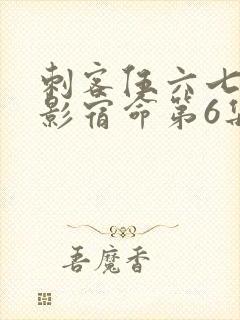 刺客伍六七
影宿命第6集
吾魔香